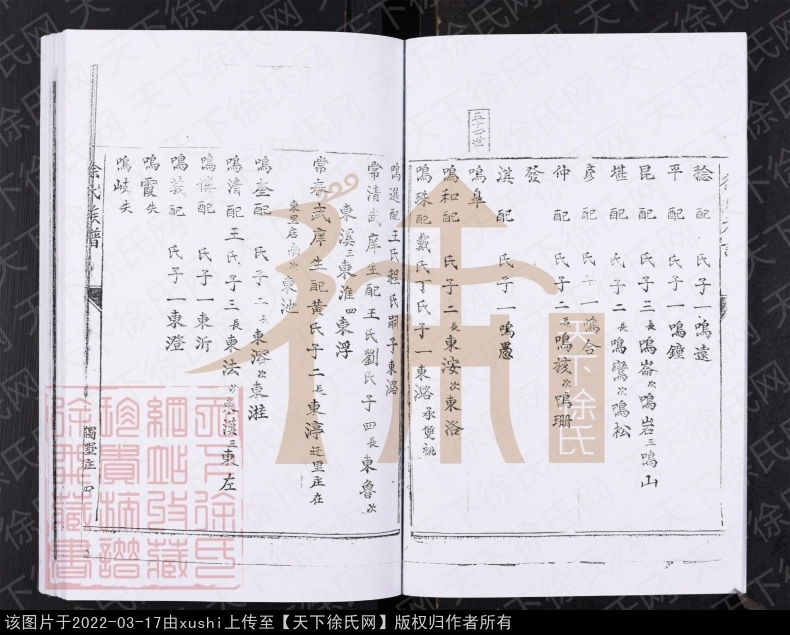 稔 配 氏子一鳴遠
平 配 氏子一鳴鐘
昆 配 氏子三長鳴崙次鳴岩三鳴山
堪 配 氏子二長鳴鸞次鳴松
彥 配 氏子一鳴合
仲 配 氏子二長鳴核次鳴珊
發
淇 配 氏子一鳴愚
五十四世
鳴皋
鳴和配 氏子二長東洝次東浴
鳴珠配戴氏丁氏子一東潞承雙祧
鳴選配王氏程氏嗣子東潞
常清武庠生配王氏劉氏子四長東魯次
東溪三東淮四東浮
常春武庠生配黃氏子二長東渟遷里庄在
東里店 東池
鳴奎配 氏子二長東深次東漄
鳴清配王氏子三長東法次東漢三東左
鳴祺配 氏子一東沂
鳴義配 氏子一東澄
鳴霞失
鳴岐失
徐氏族譜
四
天下徐氏
天下徐氏網站收藏
徐氏族譜
该图片于2022-03-17由xushi上传至【天下徐氏网】版权归作者所有